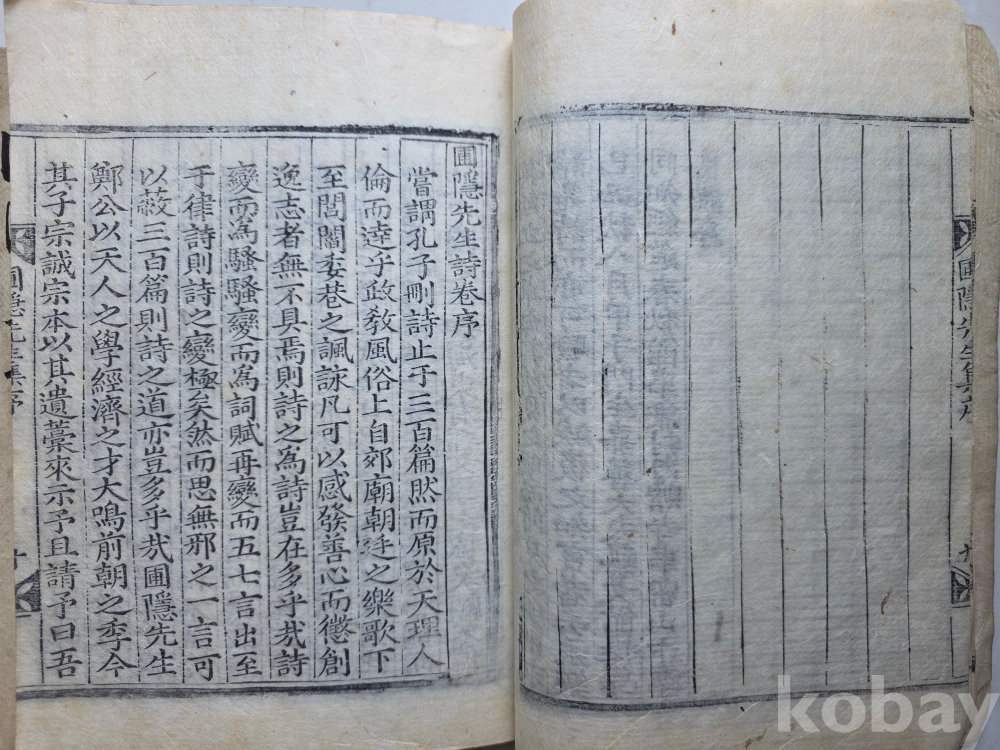 圃隱先生集序
九
圃隱先生詩卷序
嘗謂孔子刪詩止于三百篇然而原於天理人
倫而達乎政敎風俗上自郊廟朝廷之樂歌下
至閭閻委巷之諷詠凡可以感發善心而懲創
逸志者無不具焉則詩之為詩豈在多乎㦲詩
變而為騷騷變而為詞賦再變而五七言出至
于律詩則詩之變極矣然而思無邪之一言可
以蔽三百篇則詩之道亦豈多乎㦲圃隱先生
鄭公以天人之學經濟之才大鳴前朝之季今
其子宗誠宗本以其遺藁來示予且請予曰吾
圃隱先生集序
十
kobay